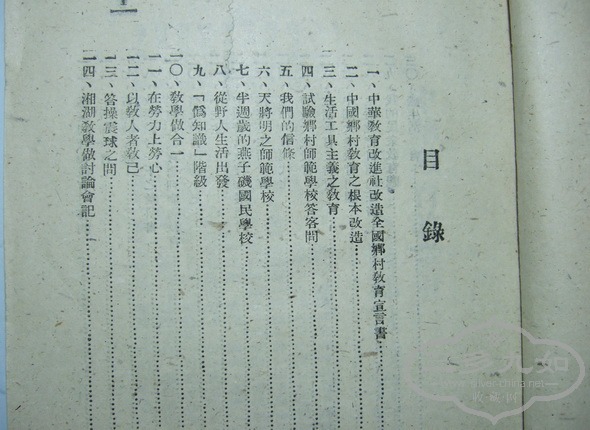 目錄
一、中華教育改進社改造全國鄉村教育宣言書
二、中國鄉村教育之根本改造
三、生活工具主義之教育
四、試驗鄉村師範學校答客問
五、我們的信條
六、天將明之師範學校
七、半週歲的燕子磯國民學校
八、從野人生活出發
九、「僞知識」階級
一〇、教學做合一
一一、在勞力上勞心
一二、以教人者教己
一三、答操震球之問
一四、湘湖教學做討論會記
www.silver-china.net